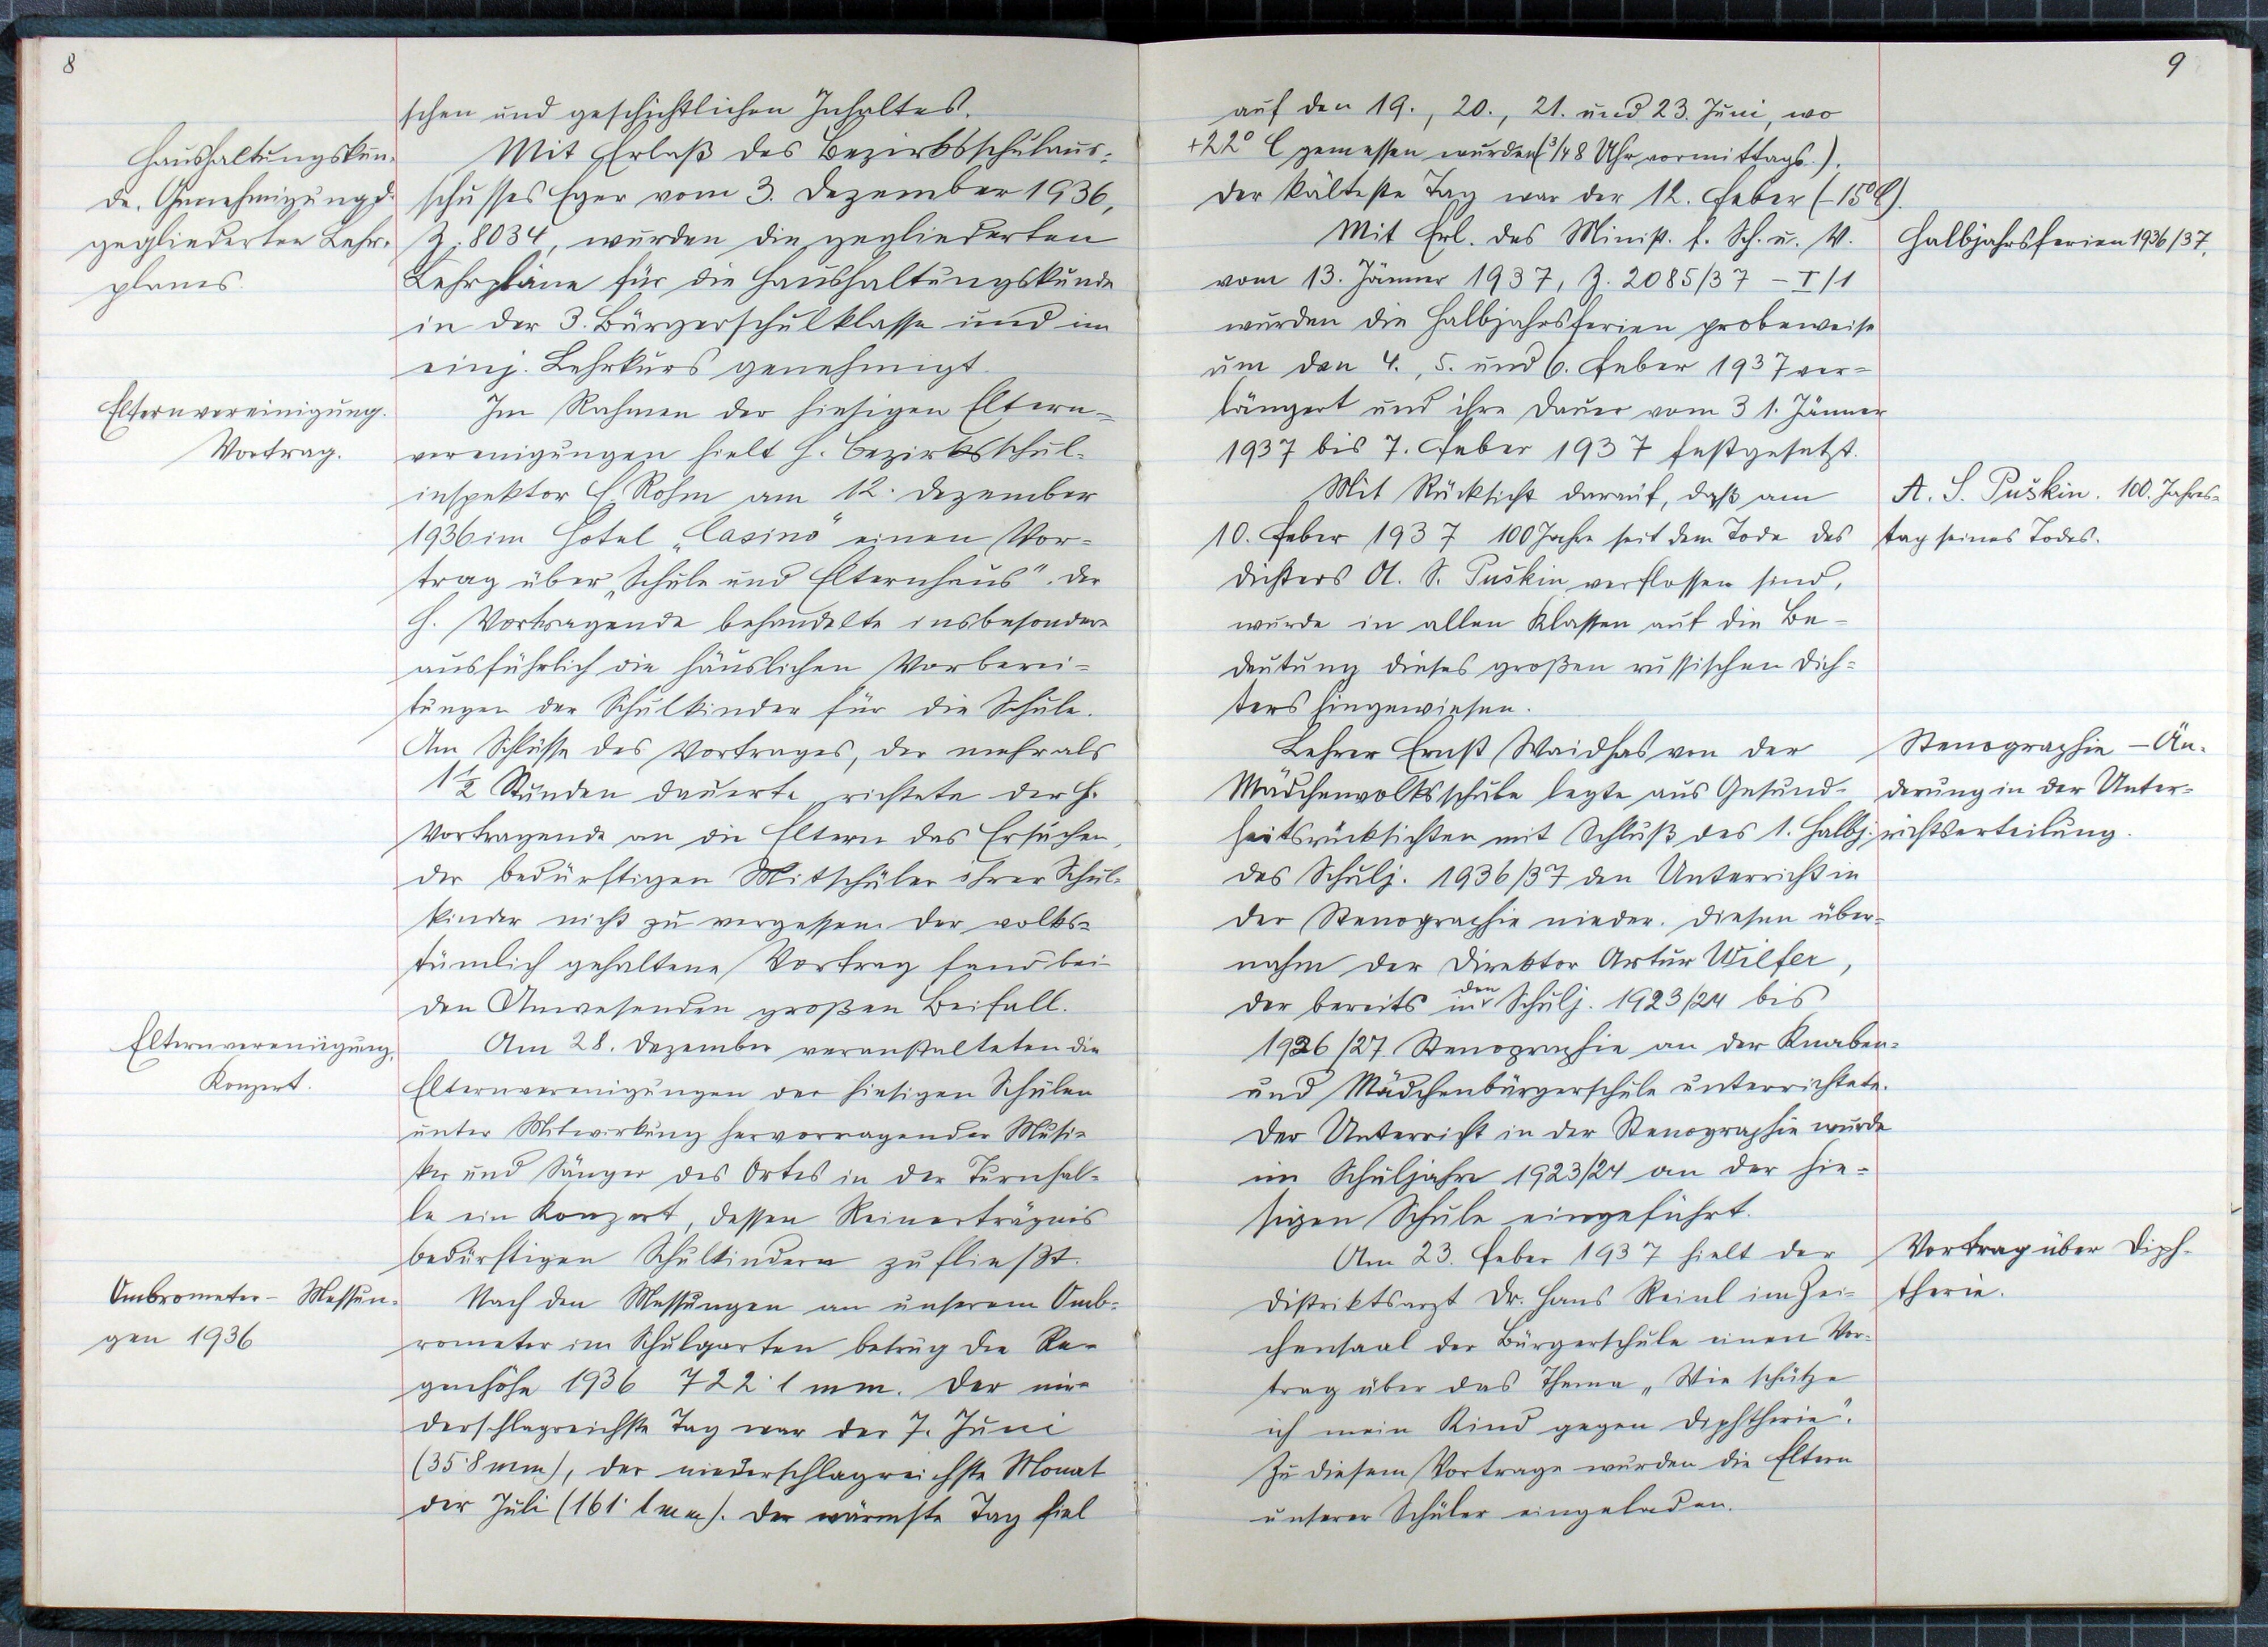 8
schen und geschichtlichen Inhaltes.
Haushaltungskun-
de. Genehmigung d.
gegliederten Lehr-
planes.
Mit Erlaß des Bezirksschulaus-
schusses Eger vom 3. Dezember 1936,
Z. 8034, wurden die gegliederten
Lehrpläne für die Haushaltungskunde
in der 3. Bürgerschulklasse und im
einj. Lehrkurs genehmigt.
Elternvereinigung.
Vortrag.
Im Rahmen der hiesigen Eltern-
vereinigungen hielt H. Bezirksschul-
inspektor E. Rohm am 12. Dezember
1936 im Hotel „Casino" einen Vor-
trag über „Schule und Elternhaus". Der
H. Vortragende behandelte insbesondere
ausführlich die häuslichen Vorberei-
tungen der Schulkinder für die Schule.
Am Schlusse des Vortrages, der mehr als
1½ Stunden dauerte, richtete der H.
Vortragende an die Eltern das Ersuchen,
der bedürftigen Mitschüler ihrer Schul-
kinder nicht zu vergessen. Der volks-
tümlich gehaltene Vortrag fand bei
den Anwesenden großen Beifall.
Elternvereinigung,
Konzert.
Am 28. Dezember veranstalteten die
Elternvereinigungen der hiesigen Schulen
unter Mitwirkung hervorragender Musi-
ker und Sänger des Ortes in der Turnhal-
le ein Konzert, dessen Reinerträgnis
bedürftigen Schulkindern zufließt.
Ombrometer- Messun-
gen 1936
Nach den Messungen an unserem Omb-
rometer im Schulgarten betrug die Re-
genhöhe 1936 722·1 mm. Der nie-
derschlagreichste Tag war der 7. Juni
(35·8 mm), der niederschlagreichste Monat
der Juli (161·1 mm). Der wärmste Tag fiel
9
auf den 19., 20., 21. und 23. Juni, wo
+22° C gemessen wurden (¾8 Uhr vormittags.).
Der kälteste Tag war der 12. Feber (-15° C).
Mit Erl. des Minist. f. Sch. u. V.
vom 13. Jänner 1937, Z. 2085/37 - I/1
wurden die Halbjahrsferien probeweise
um den 4., 5. und 6. Feber 1937 ver-
längert und ihre Dauer vom 31. Jänner
1937 bis 7. Feber 1937 festgesetzt.
Halbjahrsferien 1936/37.
Mit Rücksicht darauf, daß am
10. Feber 1937 100 Jahre seit dem Tode des
Dichters A. S. Puškin verflossen sind,
wurde in allen Klassen auf die Be-
deutung dieses großen russischen Dich-
ters hingewiesen.
A. S. Puškin. 100. Jahres-
tag seines Todes.
Lehrer Ernst Waidhas von der
Mädchenvolksschule legte aus Gesund-
heitsrücksichten mit Schluß des 1. Halbj.
des Schulj. 1936/37 den Unterricht in
der Stenographie nieder. Diesen über-
nahm der Direktor Artur Wilfer,
der bereits in den Schulj. 1923/24 bis
1926/27 Stenographie an der Knaben-
und Mädchenbürgerschule unterrichtete.
Der Unterricht in der Stenographie wurde
im Schuljahre 1923/24 an der hie-
sigen Schule eingeführt.
Stenographie – Än-
derung in der Unter-
richtserteilung.
Am 23. Feber 1937 hielt der
Distriktsarzt Dr. Hans Reinl im Zei-
chensaal der Bürgerschule einen Vor-
trag über das Thema „Wie schütze
ich mein Kind gegen Diphtherie".
Zu diesem Vortrage wurden die Eltern
unserer Schüler eingeladen.
Vortrag über Diph-
therie.